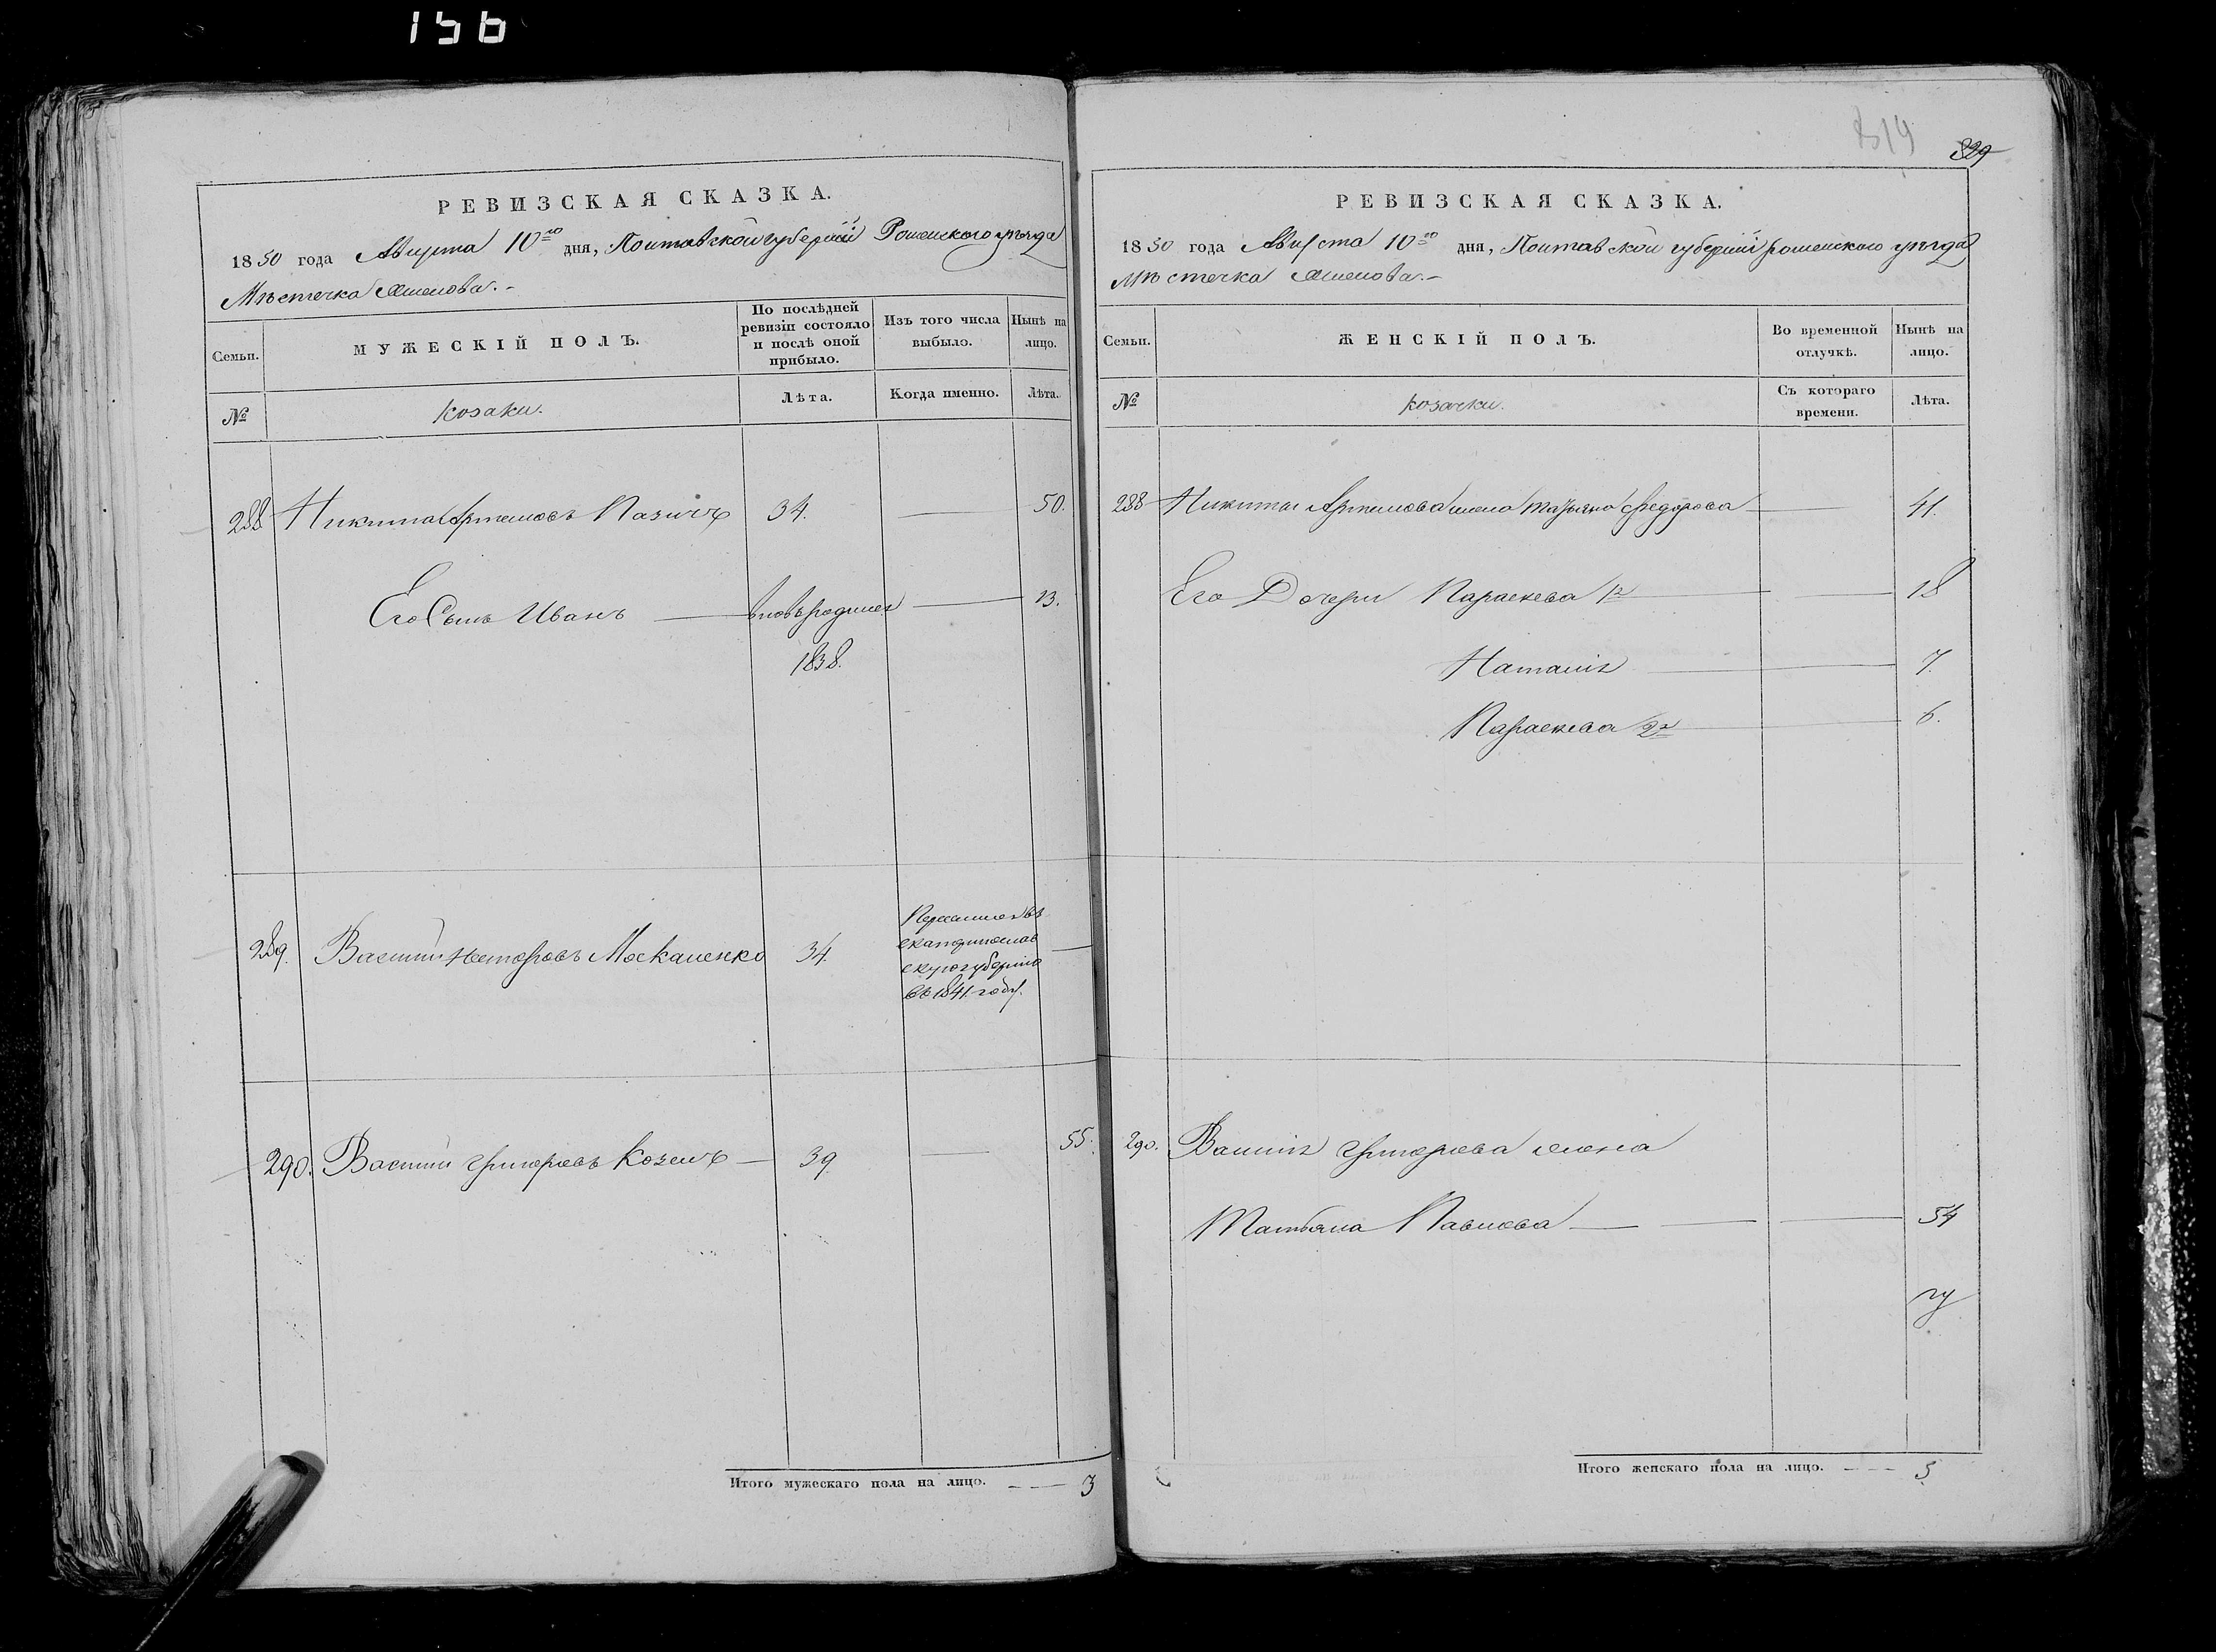 156
819
829
РЕВИЗСКАЯ СКАЗКА.
1850 года Августа 10го дня, Полтавской губерніи Роменского уѣзда
Мѣстечка
Семьи.
МУЖЕСКІЙ ПОЛЪ.
По послѣдней ревизіи состояло и послѣ оной прибыло.
Изъ того числа выбыло.
Нынѣ на лицо.
№
козаки.
Лѣта.
Когда именно.
Лѣта.
288 Никита Артемовъ 34. 50.
Его Сынъ Иванъ вновьродился 13.
1838.
289. Василий Несторовъ Москаленко 34. Переселился въ
екатеринослав
скую губернію
въ 1841 году.
290. Василий Григоровъ Козелъ 39 55.
Итого мужескаго пола на лицо. 3
РЕВИЗСКАЯ СКАЗКА.
1850 года Августа 10го дня, Полтавской губерніи роменского уѣзда
Мѣстечка
Семьи.
ЖЕНСКІЙ ПОЛЪ.
Во временной отлучкѣ.
Нынѣ на лицо.
№
козачки.
Съ котораго времени.
Лѣта.
288 Никиты Артемова жена Федорова 41.
Его Дочери Параскева 1я 18
Наталія 7.
Параскева 2я 6.
290. Василія Григорева жена
Татьяна Павлова 54
Итого женскаго пола на лицо. 5